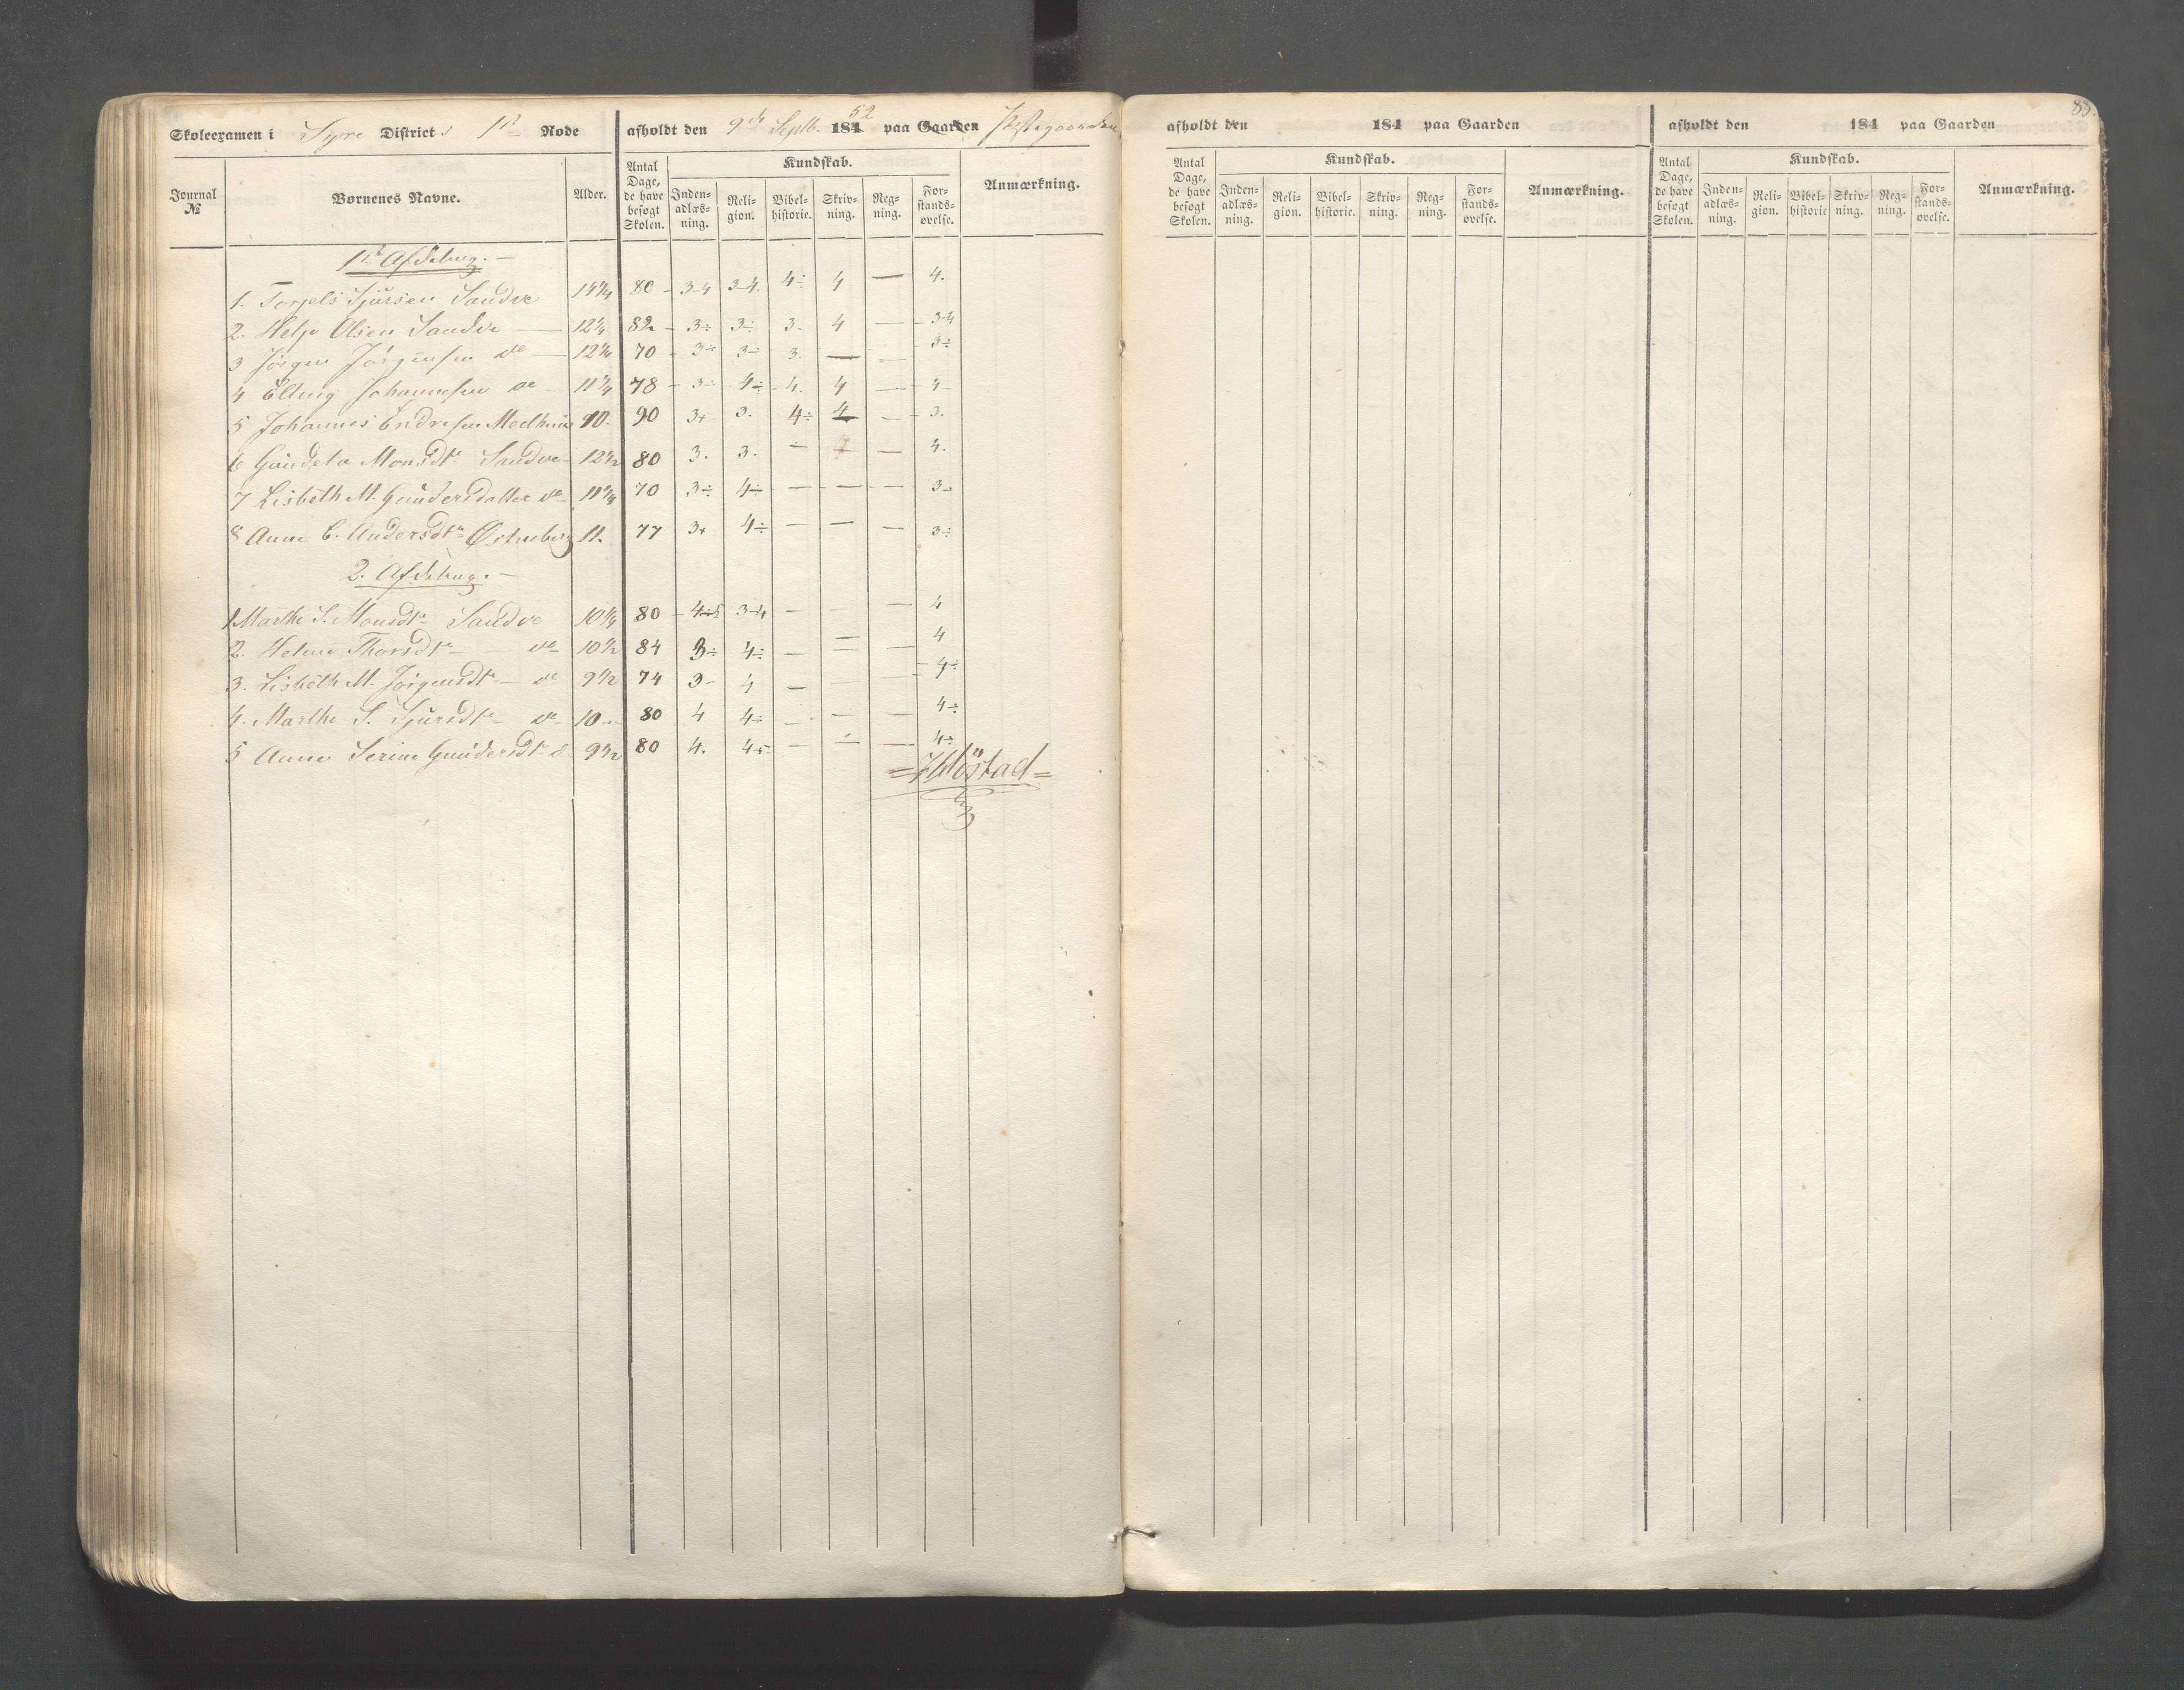 Skoleexamen i Syre Districts 1ste Rode afholdt den 9de Septb. 1852 paa Gaarden
Journal № Børnenes Navne. Alder. Antal Dage, de have besøgt Skolen. Kundskab. Anmærkning.
Indenadlæsning. Religion. Bibelhistorie. Skrivning. Regning. Forstandsøvelse.
1ste Afdeling.
1. Sjursen Sandve 80 3-4 3-4. 4÷ 4 — 4.
2. Helje Olsen Sandve 12 1/4 82 3÷ 3÷ 3. 4 — 3-4
3 Jørgen Jørgensen do 70 3÷ 3÷ 3. — — 3÷
4 Elling Johannesen do 78 3÷ 4÷ 4. 4 — 4
5 Johannes Endresen 10. 90 3+ 3. 4÷ 4 — 3.
6 Gundela Monsdtr Sandve 12 1/2 80 3. 3. — — 4.
7 Lisbeth M. Gundersdatter do 70 3÷ 4÷ — — — 3
8 Anne C. Andersdtr 11. 77 3+ 4÷ — — — 3÷
2. Afdeling.
1 Marthe S. Monsdtr Sandve 80 3-4 — — 4
2. Helene Thorsdtr do 10 1/2 84 3÷ 4÷ — — — 4
3. Lisbeth M. Jørgensdtr do 9 1/2 74 3 4 — 4÷
4. Marthe S. Sjursdtr do 10 80 4 4÷ — — — 4÷
5 Anne Serine Gundersdtr 9 1/2 80 4. — — — 4÷
afholdt den 184 paa Gaarden
Antal Dage, de have besøgt Skolen. Kundskab. Anmærkning.
Indenadlæsning. Religion. Bibelhistorie. Skrivning. Regning. Forstandsøvelse.
afholdt den 184 paa Gaarden
88.
Antal Dage, de have besøgt Skolen. Kundskab. Anmærkning.
Indenadlæsning. Religion. Bibelhistorie Skrivning. Regning. Forstandsøvelse.